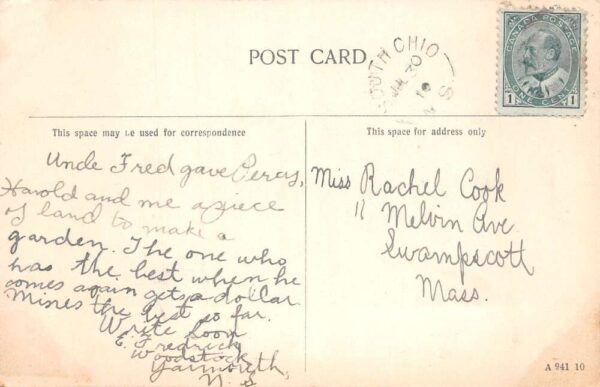 POST CARD
SOUTH OHIO
30
10
N S
CANADA POSTAGE
1 ONE CENT 1
This space may be used for correspondence
This space for address only
Uncle Fred gave Percy,
Harold and me a piece
of land to make a
garden. The one who
has the best when he
comes again gets a dollar
Mines the best so far.
Write soon
E. Fredrick
Woodstock
Yarmouth,
N. S
Miss Rachel Cook
11 Melvin Ave
Swampscott
Mass.
A 941 10